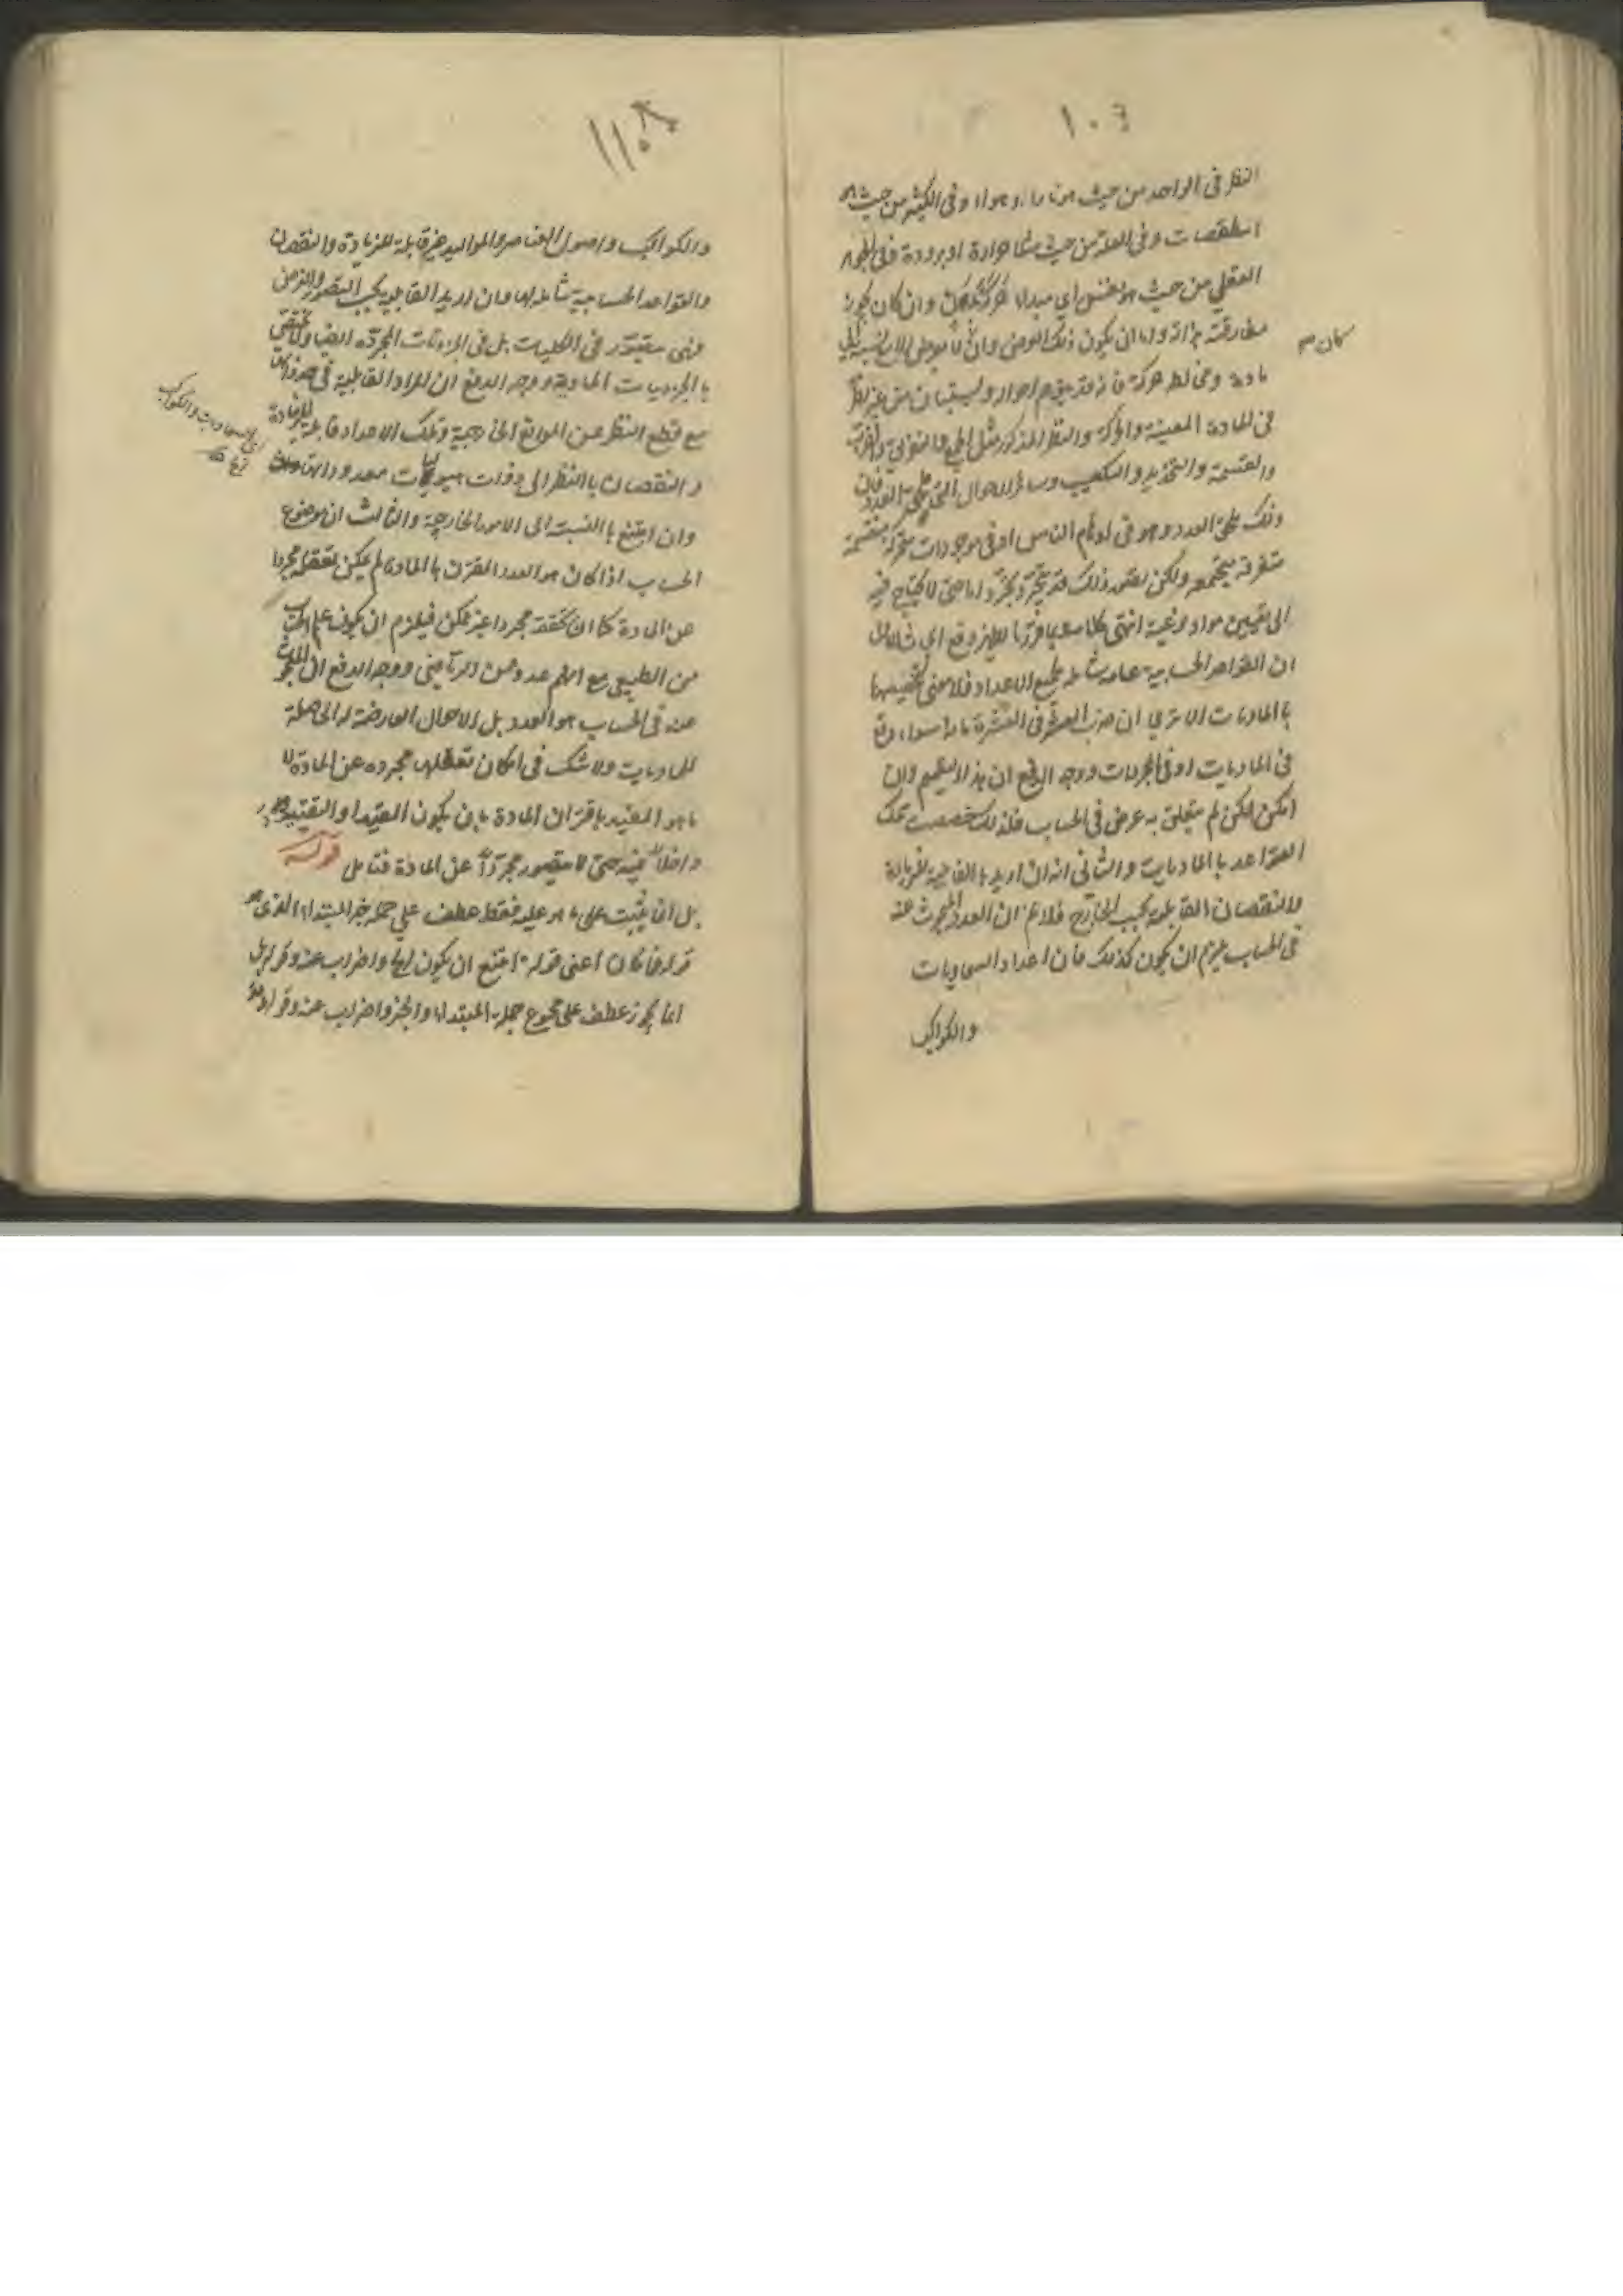 ١٠٦
النظر فى الواحد من حيث هو نار او هواء وفى الكثير من حيث هى
اسطقسات وفى العلة من حيث مثلا حرارة او برودة وفى الجوهر
العقلي من حيث هو نفس اي مبداء حركة بدن وان كان يجوز
مفارقته بذاته وله ان يكون ذلك العرض وان كان لا يعرض الا بالنسبة الى
كان
مادة ومخالط حركة فانه قد يتوهم احواله ويستبان من غير نظر
فى المادة المعينة والحركة والنظر المذكور مثل الجمع والتفريق والضرب
والقسمة والتجذير والتكعيب وسائر الاحوال التي تلحق العدد فان
ذلك يلحق العدد وهو فى اوهام الناس او فى موجودات متحركة منقسمة
متفرقة مجتمعة ولكن تصور ذلك قد يتجرد تجردا ما حتى لا يحتاج فيه
الى تعيين مواد نوعية انتهى كلامه
ان القواعد الحسابية عامة شاملة لجميع الاعداد فلا معنى لتخصيصها
بالماديات الا ترى ان ضرب العشرة فى العشرة مائة سواء وقع
فى الماديات او فى المجردات ووجه الدفع ان هذا التعميم وان
امكن لكن لم يتعلق به غرض فى الحساب فلذلك خصصت تلك
القواعد بالماديات والثانى انه ان اريد بالقابلية للزيادة
والنقصان القابلية بحسب الخارج فلا نم ان العدد المبحوث عنه
فى الحساب يلزم ان يكون كذلك فان اعداد السماويات
والكواكب
١١٠٨
والكواكب واصول العناصر والمواليد غير قابلة للزيادة والنقصان
والقواعد الحسابية شاملة لها وان اريد القابلية بحسب التصور والذهن
فهى متصور فى الكليات بل فى الجزئيات المجردة ايضا ولا تختص
بالجزئيات المادية ووجه الدفع ان المراد القابلية فى حد ذاتها
مع قطع النظر عن الموانع الخارجية وتلك الاعداد قابلة للزيادة
اى السماويات والكواكب
والنقصان بالنظر الى ذوات هيوليات معدوداتها
وان امتنع بالنسبة الى الامور الخارجية والثالث ان موضوع
الحساب اذا كان هو العدد المقترن بالمادة لم يمكن تعقله مجردا
عن المادة كما ان تحققه مجردا غير ممكن فيلزم ان يكون علم الحساب
من الطبيعى مع انهم عدوه من الرياضى ووجه الدفع ان المبحوث
عنه فى الحساب هو العدد بل الاحوال العارضة له الحاصلة
للماديات ولا شك فى امكان تعقلها مجردة عن المادة لا
ما هو المقيد باقتران المادة بان يكون القيد او التقييد
داخلا فيه حتى لا يتصور مجردا عن المادة فتامل قوله
بل ان يثبت على ما هو عليه فقط عطف على جملة خبر المبتداء الذى هو
قوله فما كان اعنى قوله امتنع ان يكون واضراب عنه وقوله بل
انما يجوز عطف على مجموع جملة المبتداء والخبر واضراب عنه وقوله